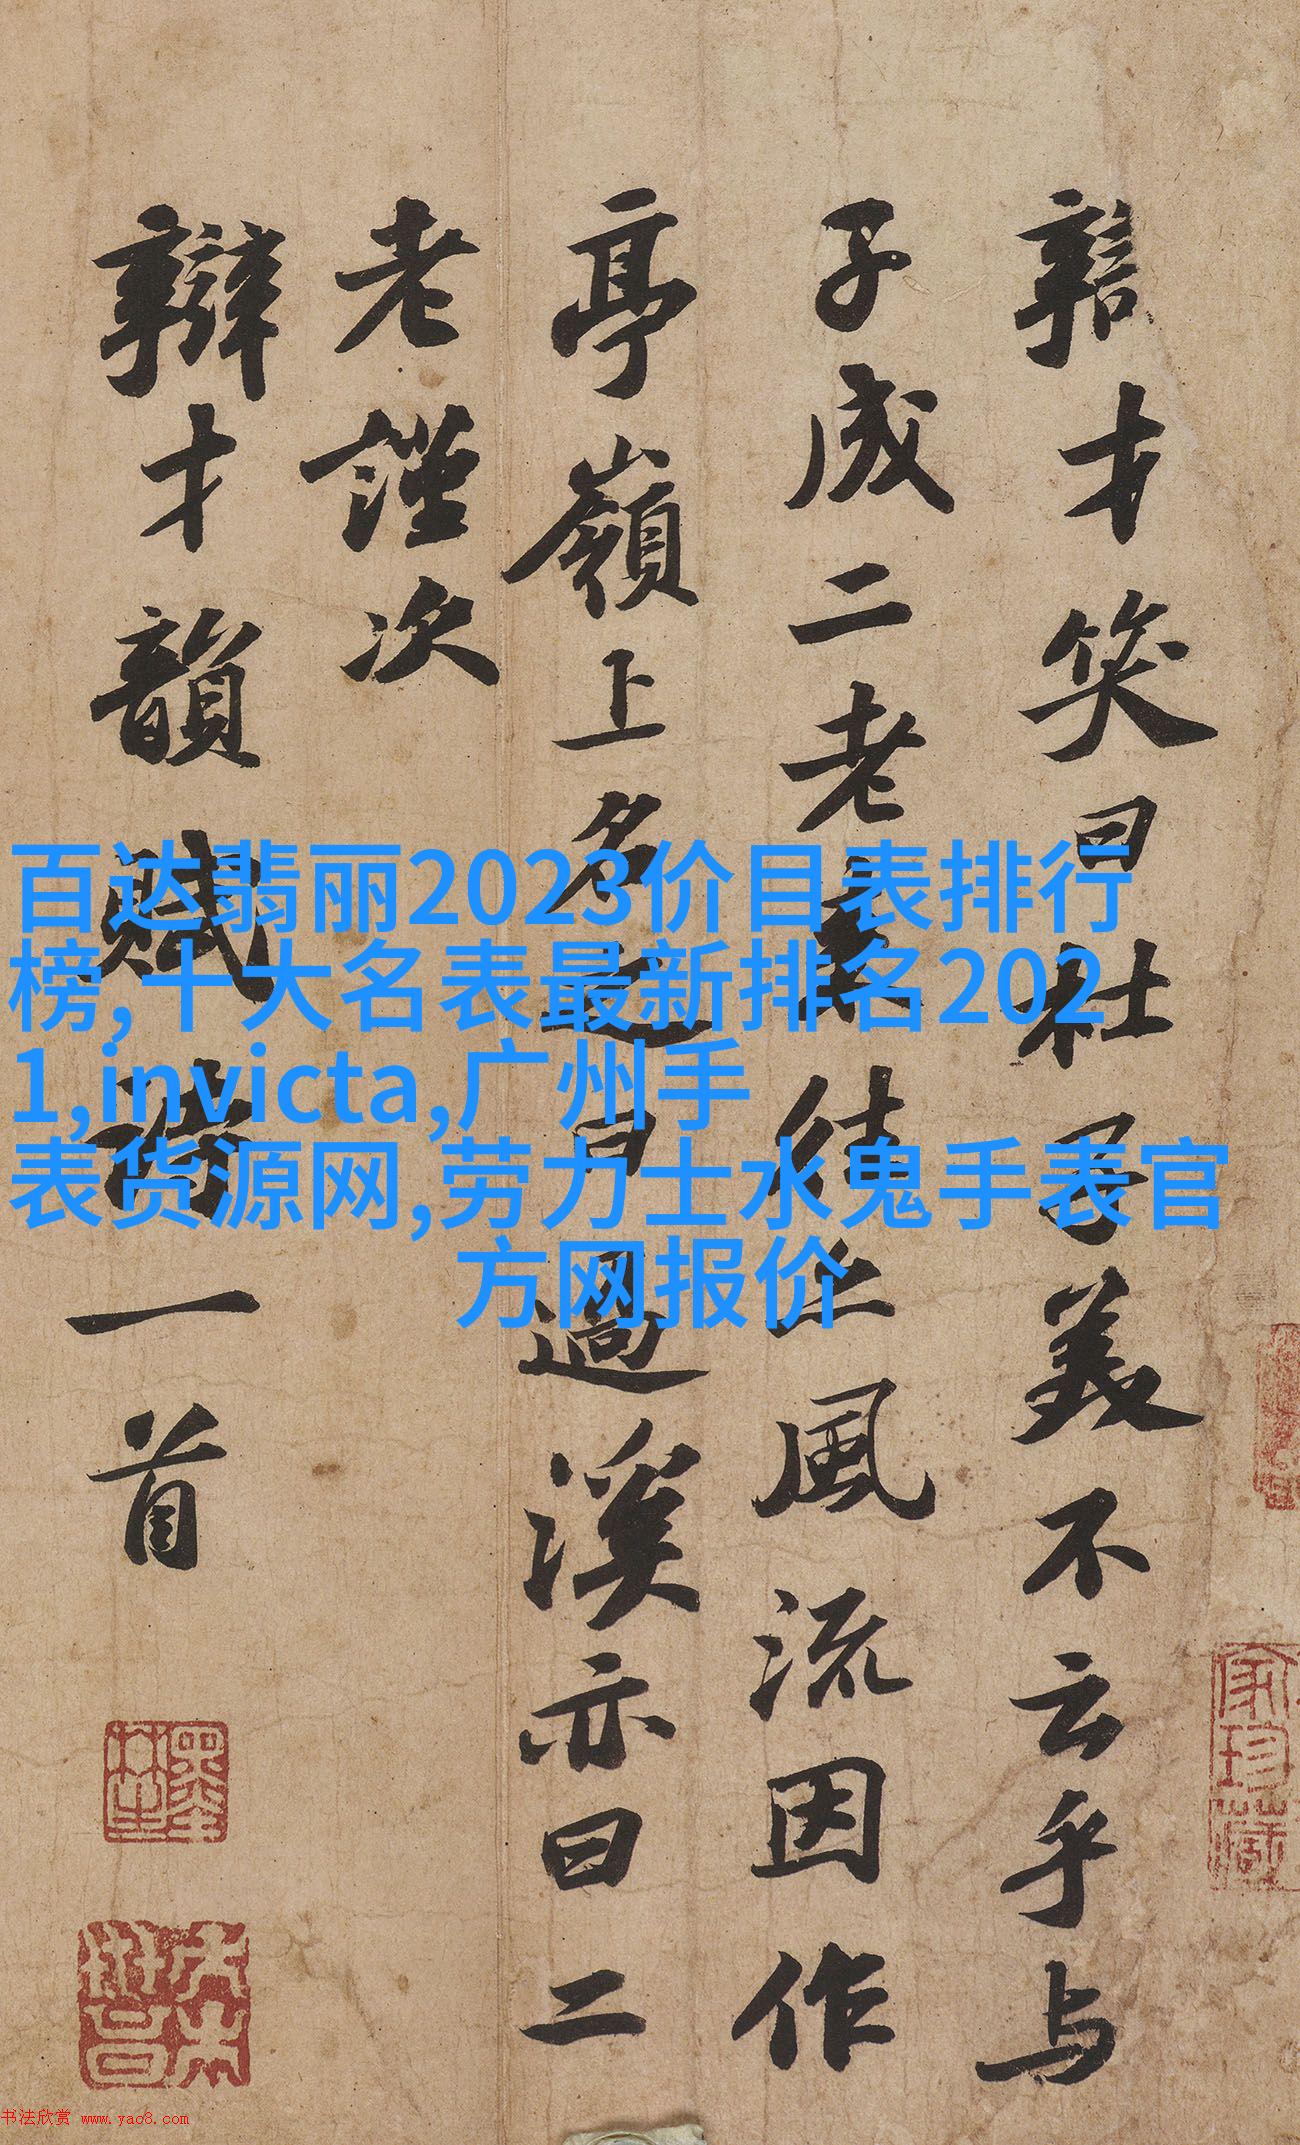 辯才笑曰杜子美不云乎与
子成二老来往亦風流因作
亭嶺上名之曰過溪亦曰二
老謹次
辯才韻賦詩一首
百达翡丽2023价目表排行
榜,十大名表最新排名202
1,invicta,广州手
表货源网,劳力士水鬼手表官
方网报价
家珍藏
书法欣赏 www.yac8.com